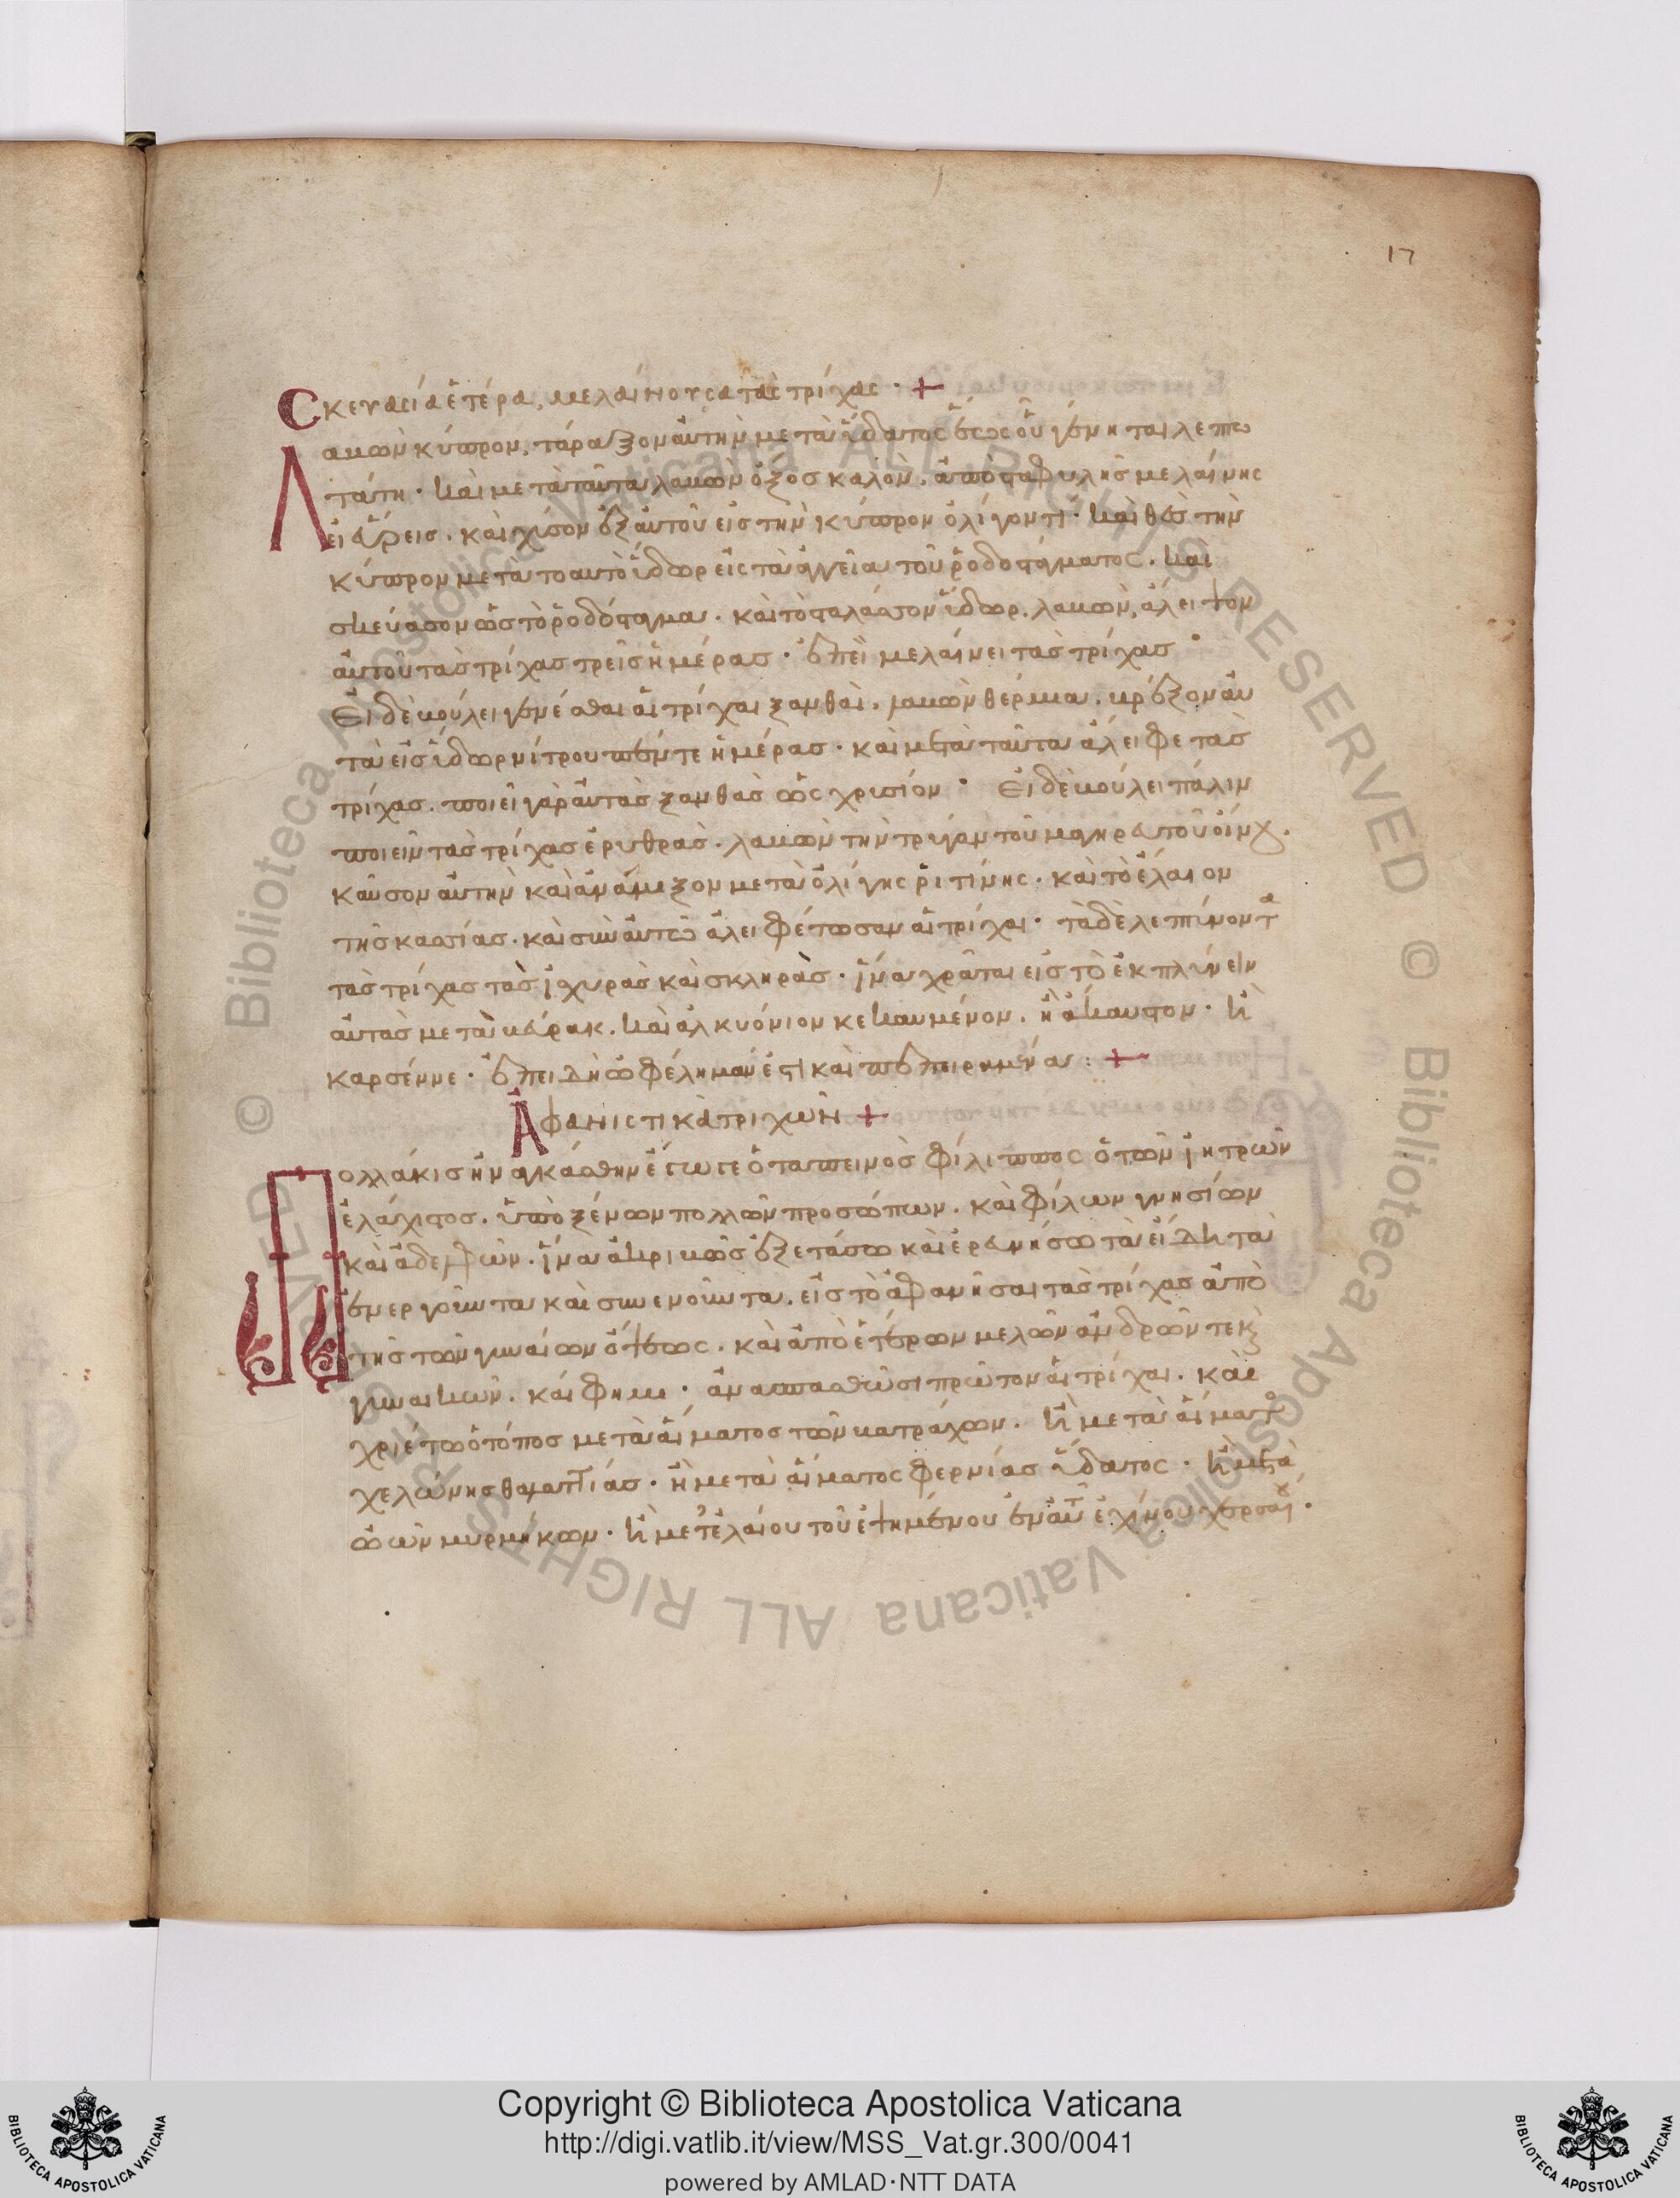 17
Σκευασία ἑτέρα, μελαίνουσα τὰς τρίχας · +
Λαβὼν κύπρον, τάραξον αὐτὴν μετὰ ὕδατος ἕως οὗ γένηται λεπτω
τάτη · καὶ μετὰ ταῦτα λαβὼν ὄξος καλὸν, ἀπὸ σταφυλῆς μελαίνης
καὶ χῦσον ἐξ αὐτοῦ εἰς τὴν κύπρον ὀλίγον τι · καὶ θὲς τὴν
κύπρον μετὰ τὸ αὐτὸ ὕδωρ εἰς τὰ ἀγγεῖα τοῦ ῥοδοστάγματος. καὶ
σκεύασον ὡς τὸ ῥοδόσταγμα. καὶ τὸ σταλάσσον ὕδωρ, λαβὼν, ἄλειψον
αὐτοῦ τὰς τρίχας τρεῖς ἡμέρας · ἐπεὶ μελαίνει τὰς τρίχας ·
Εἰ δὲ βούλει γενέσθαι αἱ τρίχαι ξανθαὶ, λαβὼν θέρμια, βρέξον αὐ
τὰ εἰς ὕδωρ νίτρου πέντε ἡμέρας · καὶ μετὰ ταῦτα ἄλειφε τὰς
τρίχας. ποιεῖ γὰρ αὐτὰς ξανθὰς ὡς χρισίον · Εἰ δὲ βούλει πάλιν
ποιεῖν τὰς τρίχας ἐρυθρὰς. λαβὼν τὴν τρύγαν τοῦ μαγηρευτοῦ οἴνου.
καῦσον αὐτὴν καὶ ἀνάμιξον μετὰ ὀλίγης ῥιτίνης. καὶ τὸ ἔλαιον
τῆς κασίας. καὶ σὺν αὐτῶ ἀλειφέτωσαν αἱ τρίχαι · τὰ δὲ λεπτύνοντα
τὰς τρίχας τὰς ἰσχυρὰς καὶ σκληρὰς · ἵνα χρᾶται εἰς τὸ ἐκπλύνειν
αὐτὰς μετὰ βάρακ. καὶ ἀλκυόνιον κεκαυμένον. ἢ ἄκαυστον · ἢ
καρσέννε · ἐπειδὴ ὠφέλημάν ἐστι καὶ πεπειρημένα : +
Ἀφανιστικὰ τριχῶν +
Πολλάκις ἠναγκάσθην ἔγωγε ὁ ταπεινὸς φίλιππος ὁ τῶν ἰητρῶν
ἐλάχιστος. ὑπὸ ξένων πολλῶν προσώπων. καὶ φίλων γνησίων
καὶ ἀδελφῶν. ἵνα ἀκριβῶς ἐξετάσω καὶ ἐρευνήσω τὰ εἴδη τὰ
ἐνεργοῦντα καὶ συνεργοῦντα. εἰς τὸ ἀφανῆσαι τὰς τρίχας ἀπὸ
τῆς τῶν γυναίων ὄψεως. καὶ ἀπὸ ἑτέρων μελῶν ἀνδρῶν τε καὶ
γυναικῶν. καί φημι · ἀνασπασθῶσι πρῶτον αἱ τρίχαι. καὶ
χριέτω ὁ τόπος μετὰ αἵματος τῶν βατράχων. ἢ μετὰ αἵματος
χελώνης θαλαττίας · ἢ μετὰ αἵματος φερνίας ὕδατος · ἢ μετὰ
ὠῶν μυρμήκων · ἢ μετ' ἐλαίου τοῦ ἑψημένου ἐν αὐτῷ ἐχίνου χερσαί ·
Copyright © Biblioteca Apostolica Vaticana
http://digi.vatlib.it/view/MSS_Vat.gr.300/0041
powered by AMLAD·NTT DATA